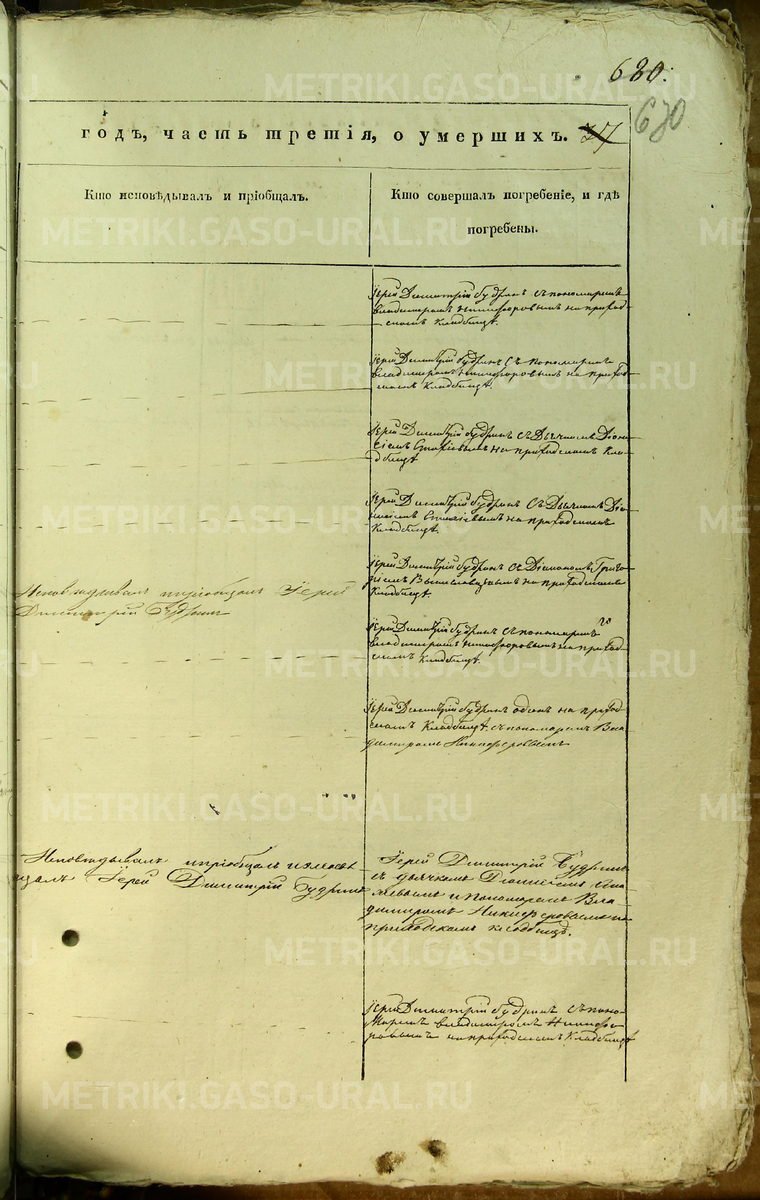 680.
630
годъ, часть третія, о умершихъ. 77
Кто исповѣдывалъ и пріобщалъ.
Кто совершалъ погребеніе, и гдѣ
погребены.
Іерей Димитрій Будринъ съ пономаремъ
Владимиромъ Никифоровымъ на приход-
скомъ Кладбищѣ.
Іерей Димитрій Будринъ съ пономаремъ
Владимиромъ Никифоровымъ на приход-
скомъ Кладбищѣ.
Іерей Димитрій Будринъ съ Дьячкомъ Діони-
сіемъ на приходскомъ Кла-
дбищѣ
Іерей Димитрій Будринъ съ Дьячкомъ Діо-
нисіемъ на приходскомъ
Кладбищѣ.
Іерей Димитрій Будринъ съ Діакономъ Григо-
ріемъ на приходскомъ
Кладбищѣ.
Исповѣдывалъ и пріобщалъ Іерей
Димитрій Будринъ
Іерей Димитрій Будринъ съ пономаремъ
Владимиромъ Никифоровымъ на приход-
скомъ Кладбищѣ.
Іерей Димитрій Будринъ одинъ на приход-
скомъ Кладбищѣ. съ пономаремъ Вла-
димиромъ Никифоровымъ
Исповѣдывалъ и пріобщалъ
Іерей Димитрій Будринъ
Іерей Димитрій Будринъ
съ дьячкомъ Діонисіемъ
и пономаремъ Вла-
димиромъ Никифоровымъ на
приходскомъ кладбищѣ.
Іерей Димитрій Будринъ съ поно-
маремъ Владимиромъ Никифо-
ровымъ на приходскомъ Кладбищѣ
METRIKI.GASO-URAL.RU